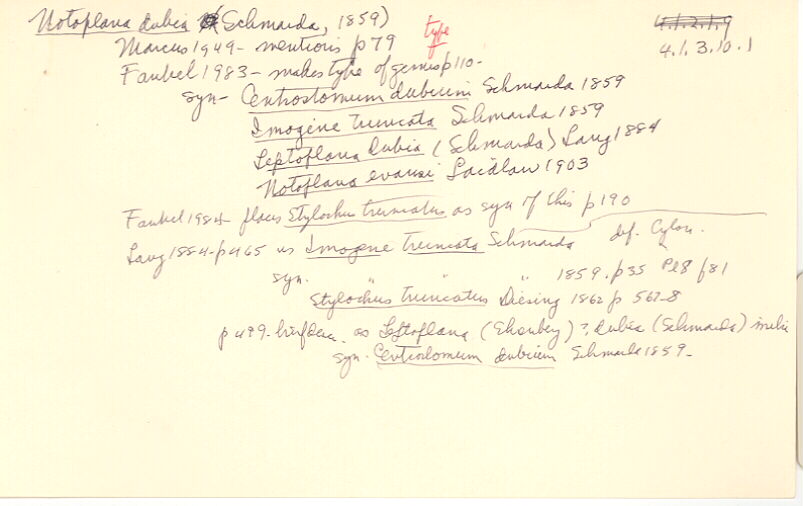 Notoplana dubia (Schmarda, 1859)
type
4.1.2.1.9
Marcus 1949 - mentions p79
4.1.3.10.1
Faubel 1983 - makes type of genus p110 -
syn - Centrostomum dubium Schmarda 1859
Imogine truncata Schmarda 1859
Leptoplana dubia (Schmarda) Lang 1884
Notoplana evansi Laidlaw 1903
Faubel 1984 places Stylochus truncatus as syn of this p190
Lang 1884 - p465 as Imogene truncata Schmarda def. Cylon.
syn. " " " 1859. p35 Pl 8 f81
Stylochus truncatus Diesing 1862 p 567-8
p 499 - brief desc. as Leptoplana (Ehrenberg) ? dubia (Schmarda) mihi
syn. Centrostomum dubium Schmarda 1859 -